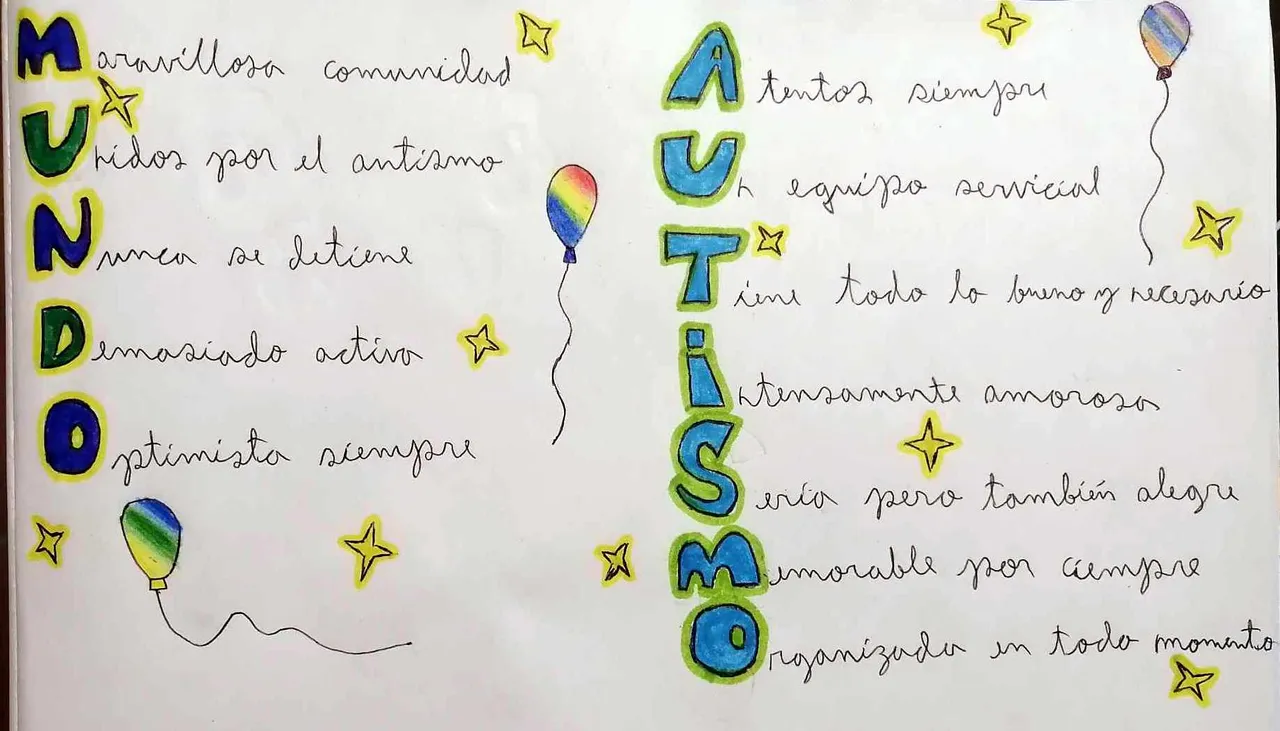 Maravillosa comunidad
Unidos por el autismo
Nunca se detiene
Demasiado activa
Optimista siempre
Atentos siempre
Un equipo servicial
Tiene todo lo bueno y necesario
Intensamente amorosa
Sería pero también alegre
Memorable por ciempre
Organizada en todo momento